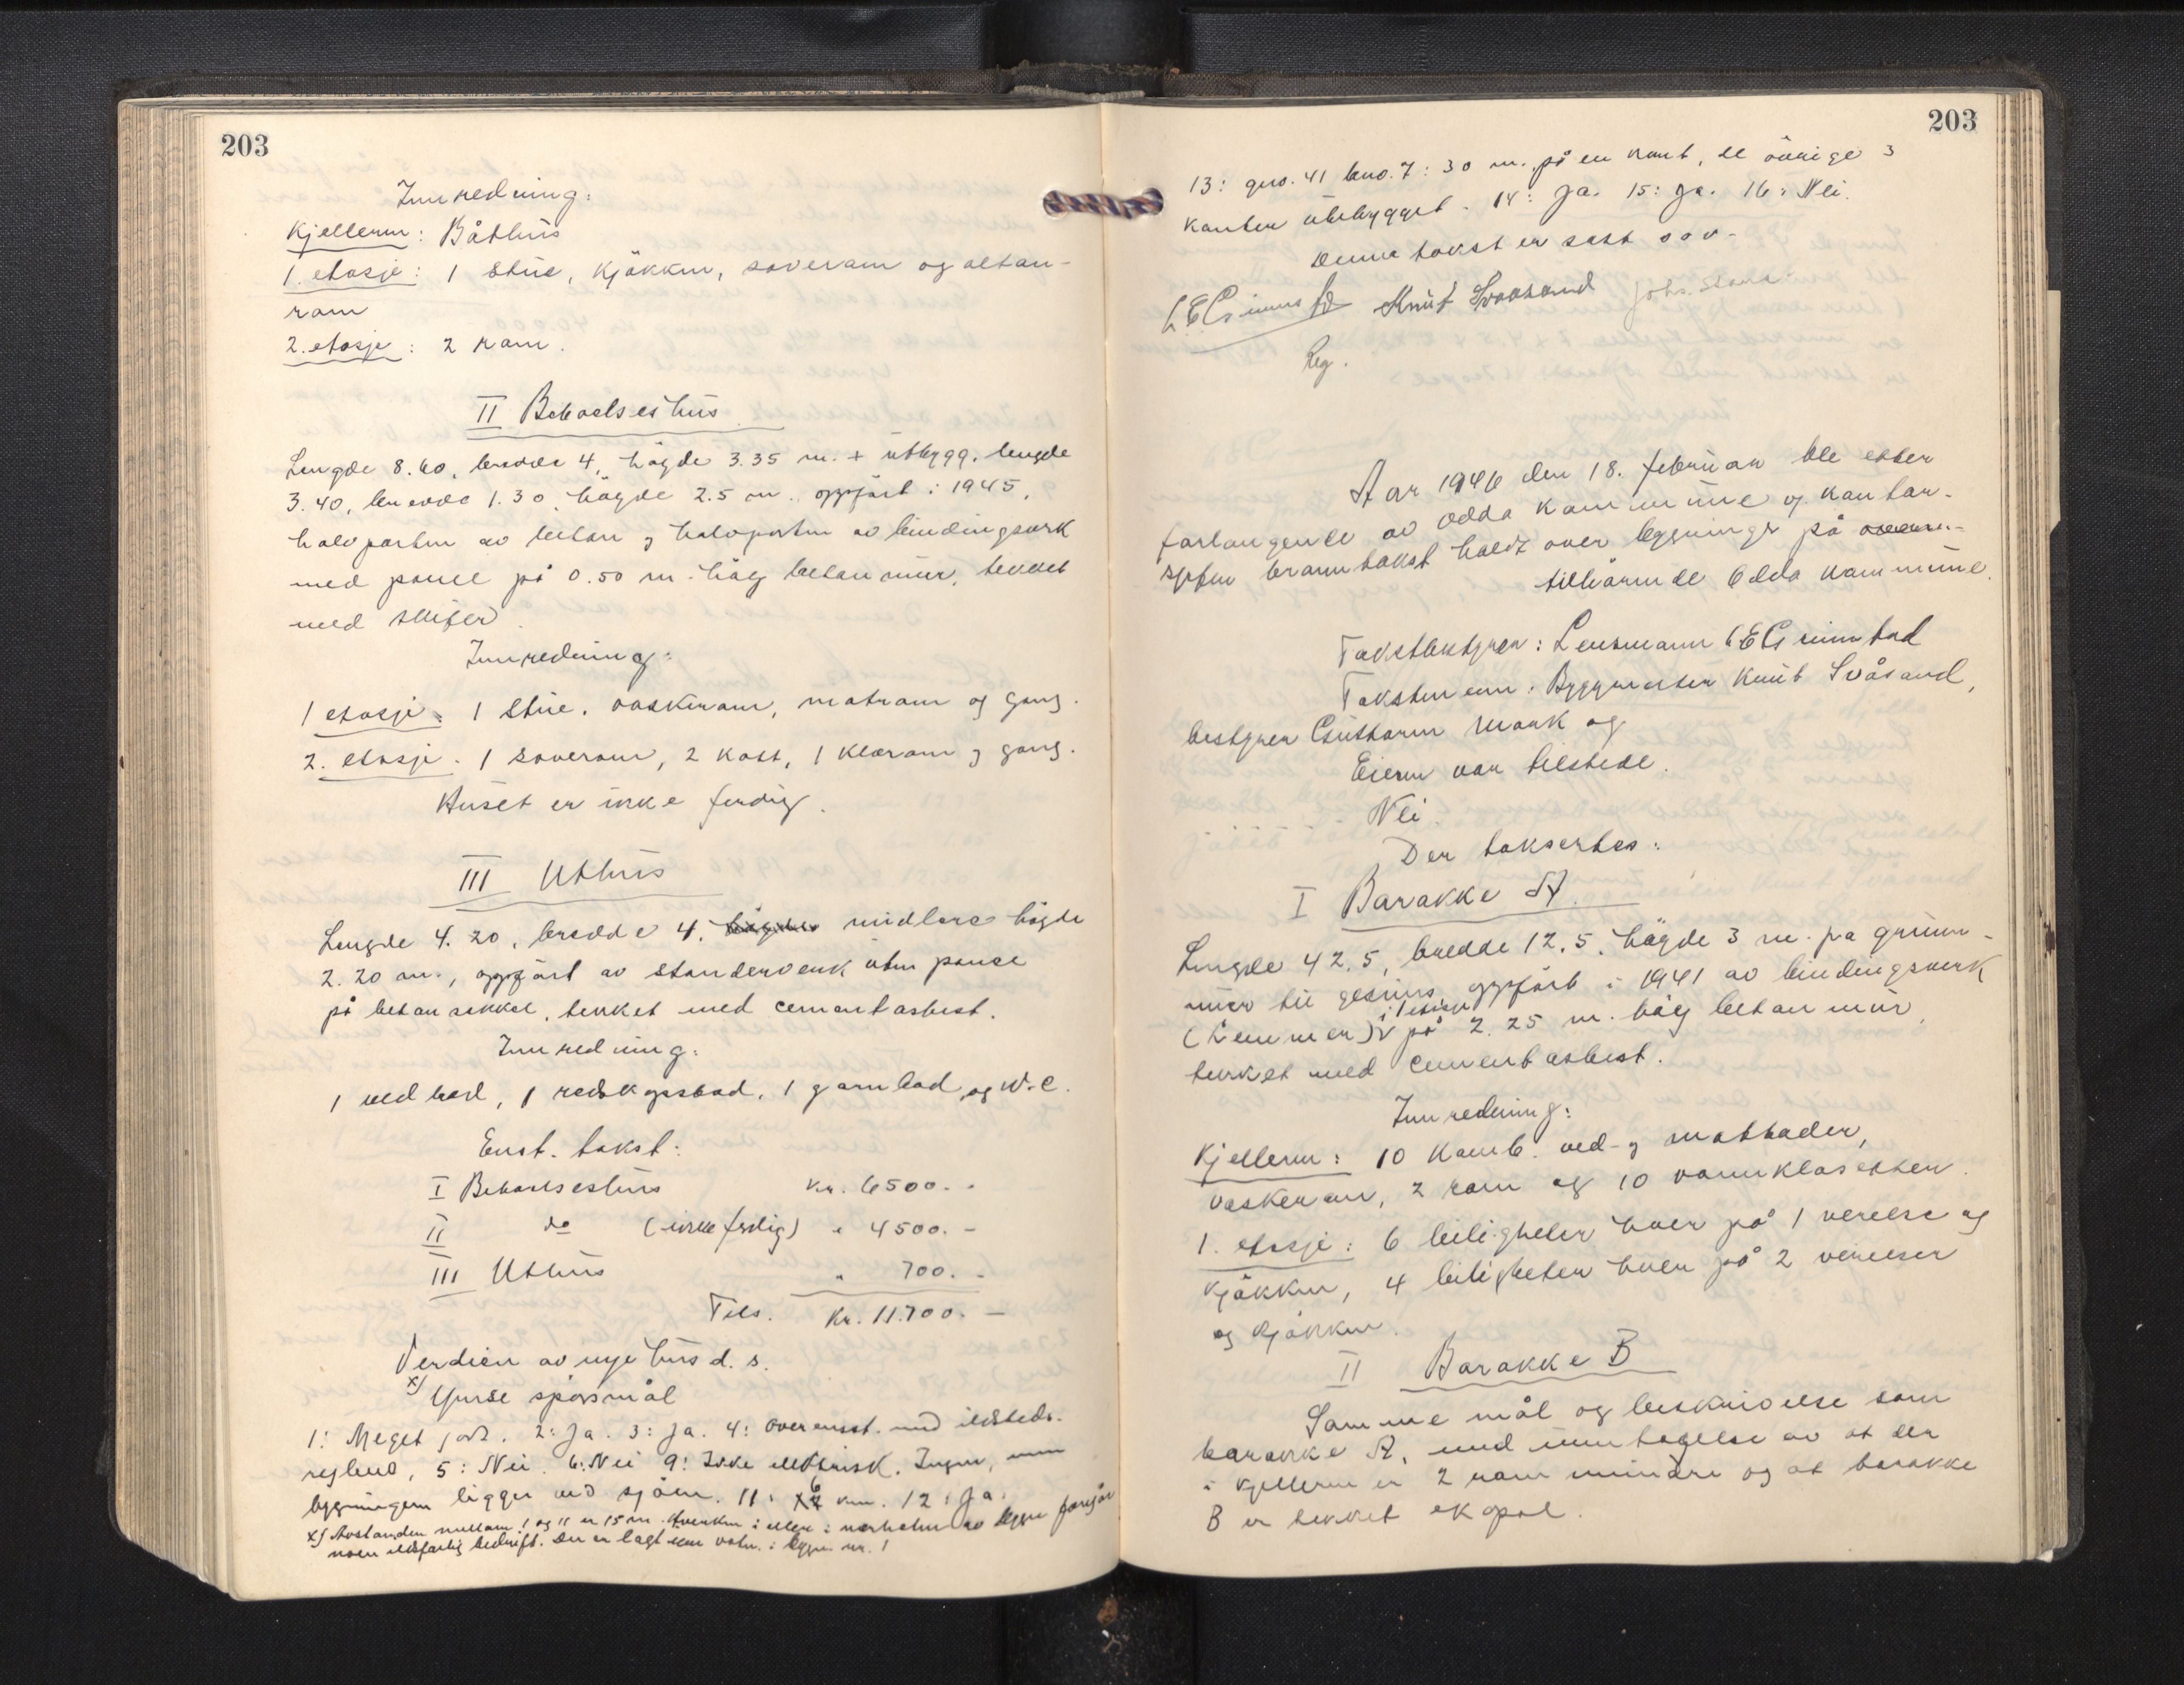 203
Innredning:
Kjelleren: Båthus
1. etasje: 1 stue, kjökken, soverom og altan-
rom
2. etasje: 2 rom.
II Beboelseshus
Lengde 8.60, bredde 4, högde 3.35 m. + utbygg. lengde
3.40, bredde 1.30, högde 2.5 m., oppfört i 1945,
halvparten av beton og halvparten av bindingsverk
med panel på 0.50 m. hög betonmur, tekket
med skifer.
Innredning:
1 etasje: 1 stue, vaskerom, matrom og gang.
2. etasje. 1 soverom, 2 kott, 1 klærom og gang.
Huset er ikke ferdig.
III Uthus
Lengde 4.20, bredde 4, midlere högde
2.20 m., oppfört av standerverk uten panel
på betonsokkel, tekket med cementasbest.
Innredning:
1 vedbod, 1 redskapsbod, 1 garnbod og W.C.
Enst. takst:
I Beboelseshus Kr. 6500.-
II do (ikke ferdig) " 4500.-
III Uthus " 700.-
Tils. Kr. 11.700.-
Verdien av nye hus d. s.
x) Ymse spörsmål
1: Meget godt. 2: Ja. 3: Ja. 4: Overensst. med ildsteds-
reglene, 5: Nei. 6: Nei 9: Ikke elektrisk. Ingen, men
bygningen ligger ved sjöen. 11: 6 km. 12: Ja.
x) Avstanden mellom I og II er 15 m. Hverken i eller i nærheten av bygn. foregår
noen ildsfarlig bedrift. Der er lagt inn vatn i bygn. nr. 1
203
13: gno. 41 bno. 7: 30 m. på en kant, de övrige 3
kanter ubebygget. 14: Ja. 15: Ja. 16: Nei.
Denne takst er satt o s v -
L E Grimstad Knut Svaasand Johs.
Reg.
Aar 1946 den 18. februar ble etter
forlangende av Odda kommune og kontor-
sjefen branntakst holdt over bygninger på
tilhörende Odda kommune.
Takstbestyrer: Lensmann L E Grimstad
Takstmenn: Byggmester Knut Svåsand,
bestyrer Guttorm Mark og
Eieren var tilstede.
Nei.
Der taksertes:
I Barakke A.
Lengde 42.5, bredde 12.5, högde 3 m. på grunn-
mur til gesims, oppfört i 1941 av bindingsverk
(lemmer) i 1 etasje på 2.25 m. höy betonmur,
tekket med cementasbest.
Innredning:
Kjelleren: 10 komb. ved- og matboder,
vaskerom, 2 rom og 10 vannklosetter.
1. etasje: 6 leiligheter hver på 1 værelse og
kjökken, 4 leiligheter hver på 2 værelser
og kjökken.
II Barakke B
Samme mål og beskrivelse som
barakke A, med unntagelse av at der
i kjelleren er 2 rom mindre og at barakke
B er tekket